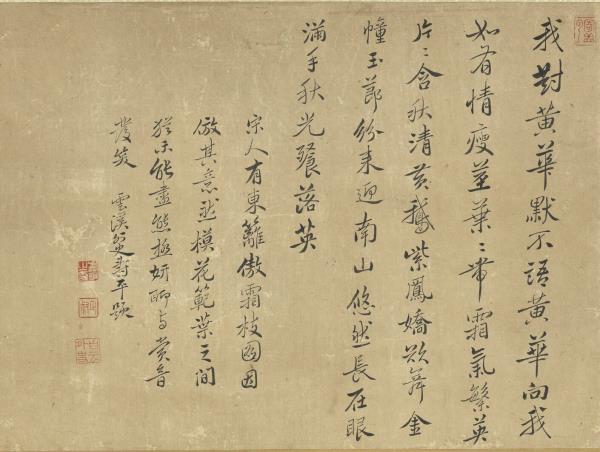 我對黃華默不語黃華向我
如有情瘦莖葉〻帶霜氣繁英
片〻含秋清黃鵝紫鳳嬌欲舞金
幢玉節紛来迎南山悠然長在眼
滿手秋光飱落英
宋人有東籬傲霜枝圖因
倣其意然模花範葉之間
猶未能盡態極妍聊与賞音
發笑
雲溪外史壽平題